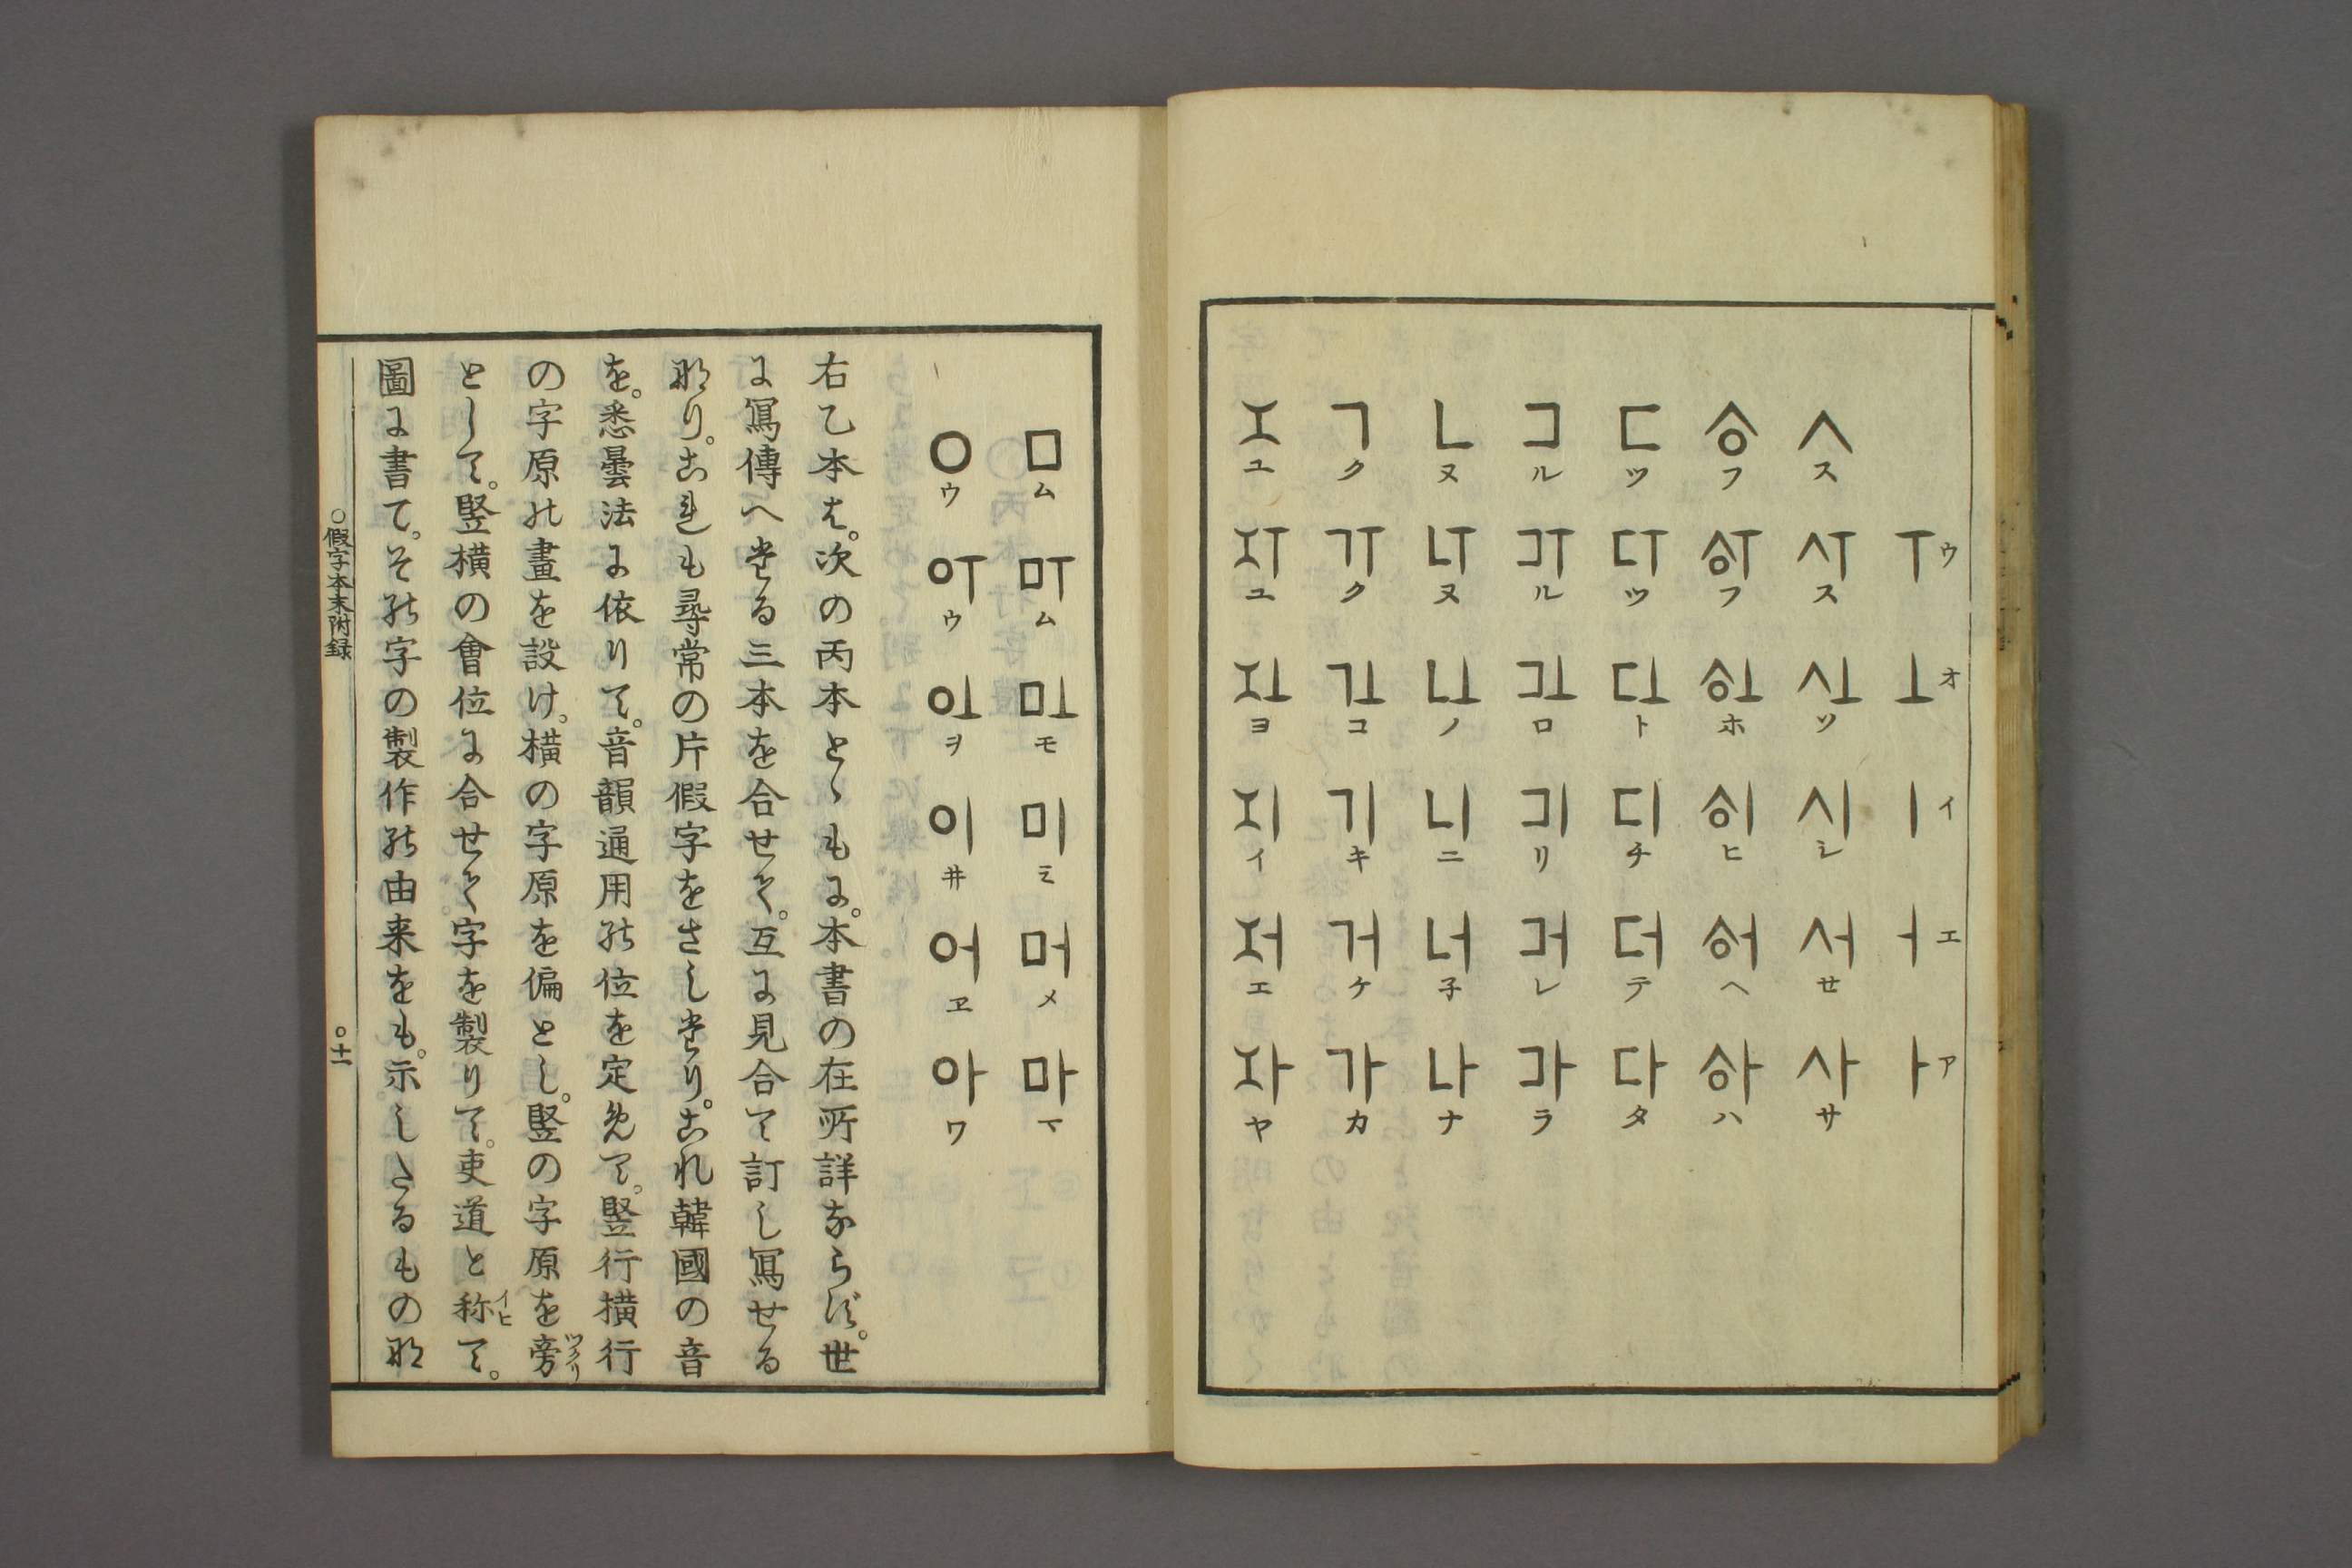 ㅜウ ㅗオ ㅣイ ㅓエ ㅏア
ㅅス ㅅㅜス ㅅㅗソ 시シ 서セ 사サ
ㅎフ ㅎㅜフ ㅎㅗホ 히ヒ 허ヘ 하ハ
ㄷツ ㄷㅜツ ㄷㅗト 디チ 더テ 다タ
コル コㅜル コㅗロ コㅣリ コㅓレ コㅏラ
ㄴヌ ㄴㅜヌ ㄴㅗノ 니ニ 너子 나ナ
ㄱク ㄱㅜク ㄱㅗコ 기キ 거ケ 가カ
ㅈユ ㅈㅜユ ㅈㅗヨ 지イ 저エ 자ヤ
ㅁム ㅁㅜム ㅁㅗモ 미ミ 머メ 마マ
ㅇウ ㅇㅜウ ㅇㅗヲ 이井 어ヱ 아ワ
右乙本は。次の丙本とゝもに。本書の在所詳ならず。世
に寫傳へたる三本を合せて。互に見合て訂し寫せる
なり。これも尋常の片假字をさしたり。これ韓國の音
を。悉曇法に依りて。音韻通用の位を定めて。竪行横行
の字原の畫を設け。横の字原を偏とし。竪の字原を旁ツクリ
として。竪横の會位に合せて字を製りて。吏道と称イヒて。
圖に書て。その字の製作の由来をも。示したるものな
○假字本末附録 ○十一